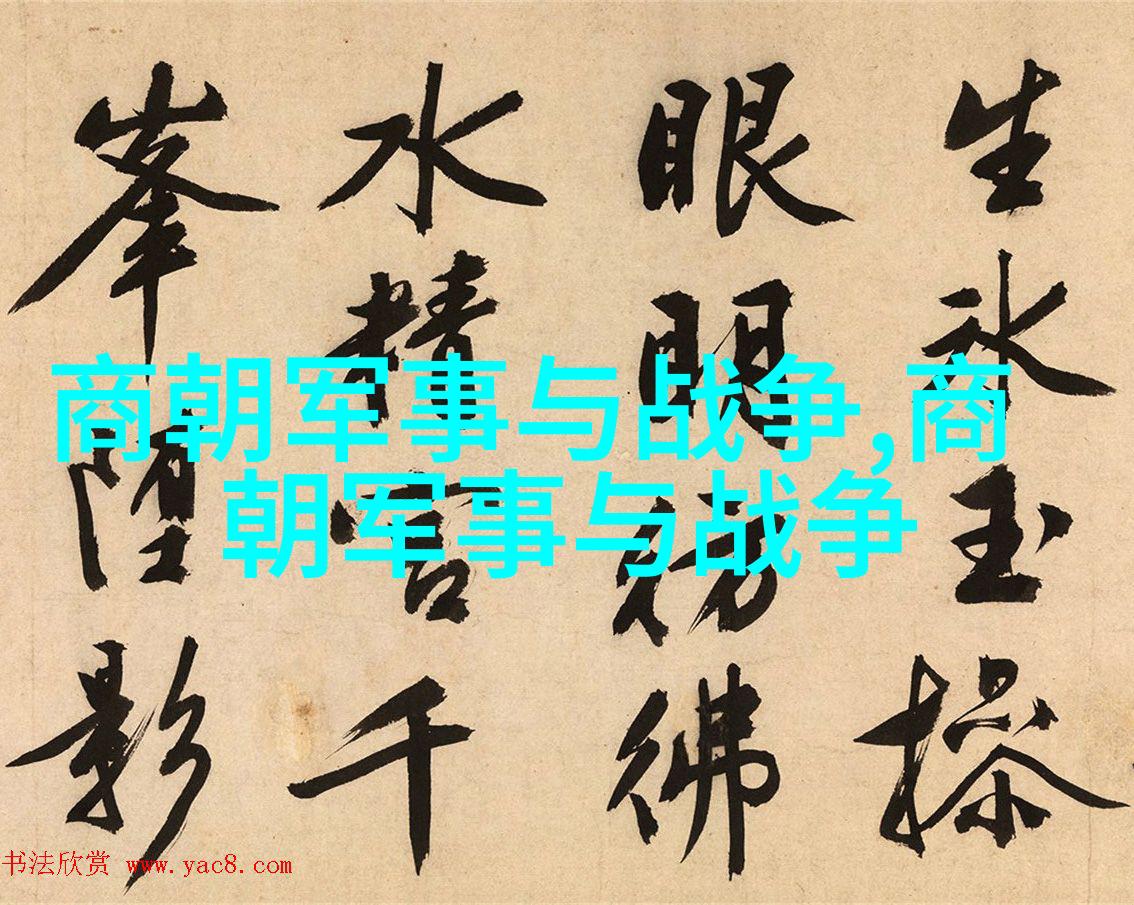 生冰玉操
眼彷彿
水精宮千
峯堕影
商朝军事与战争,商
朝军事与战争
书法欣赏 www.yac8.com